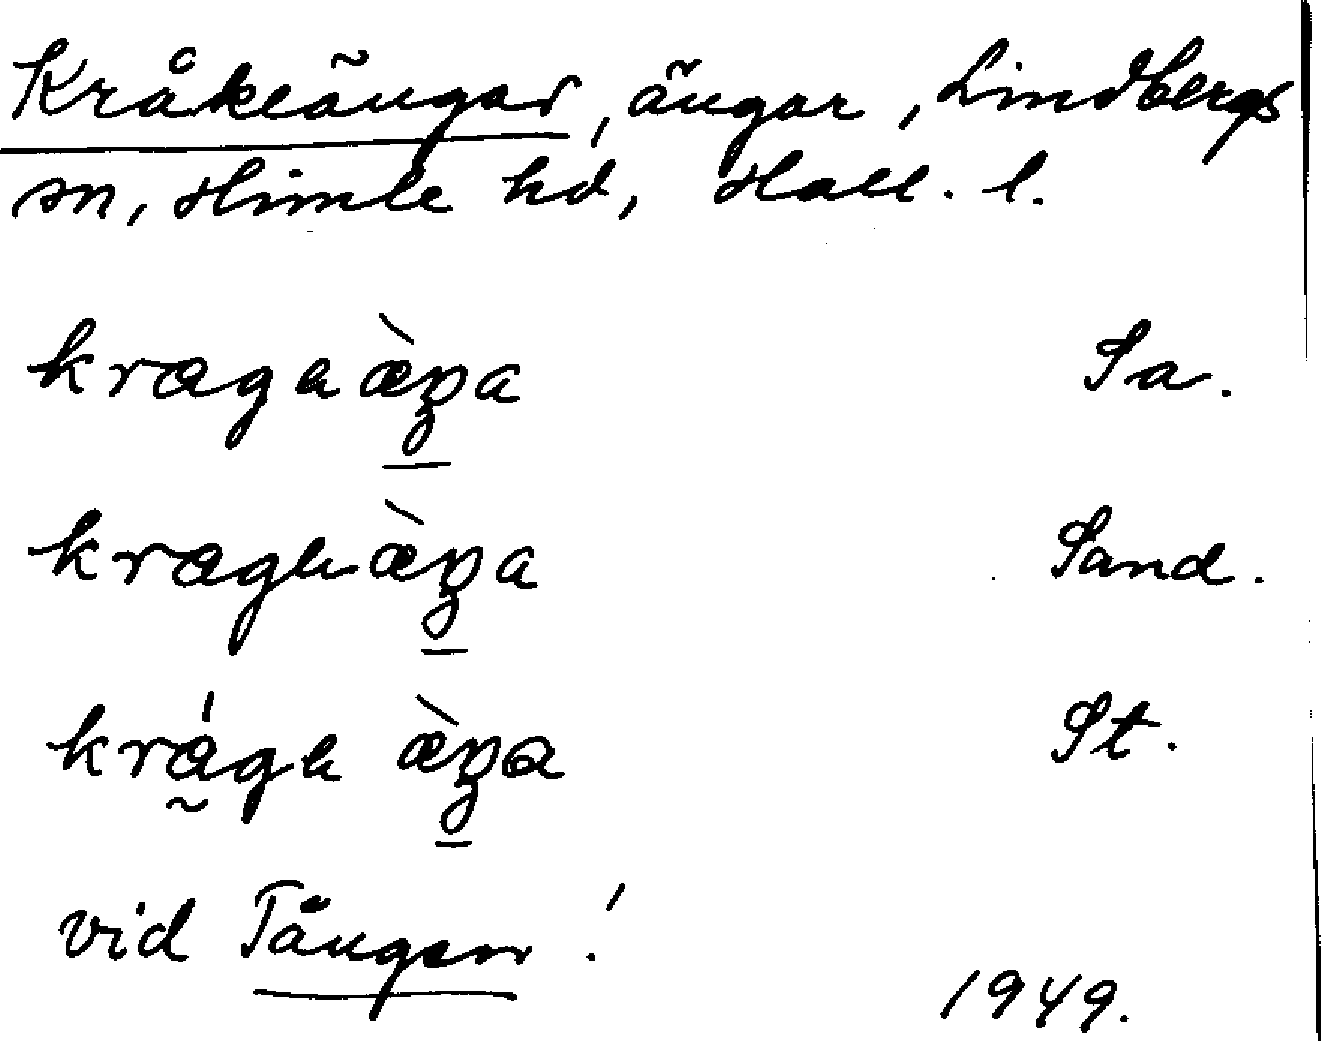 Kråkeängar, ängar, Lindbergs
sn, Himle hd, Hall. l.
krægaæ̀ŋa Sa.
krægaæ̀ŋa Sand.
krá̰ga æ̀ŋa St.
vid Tången!
1949.